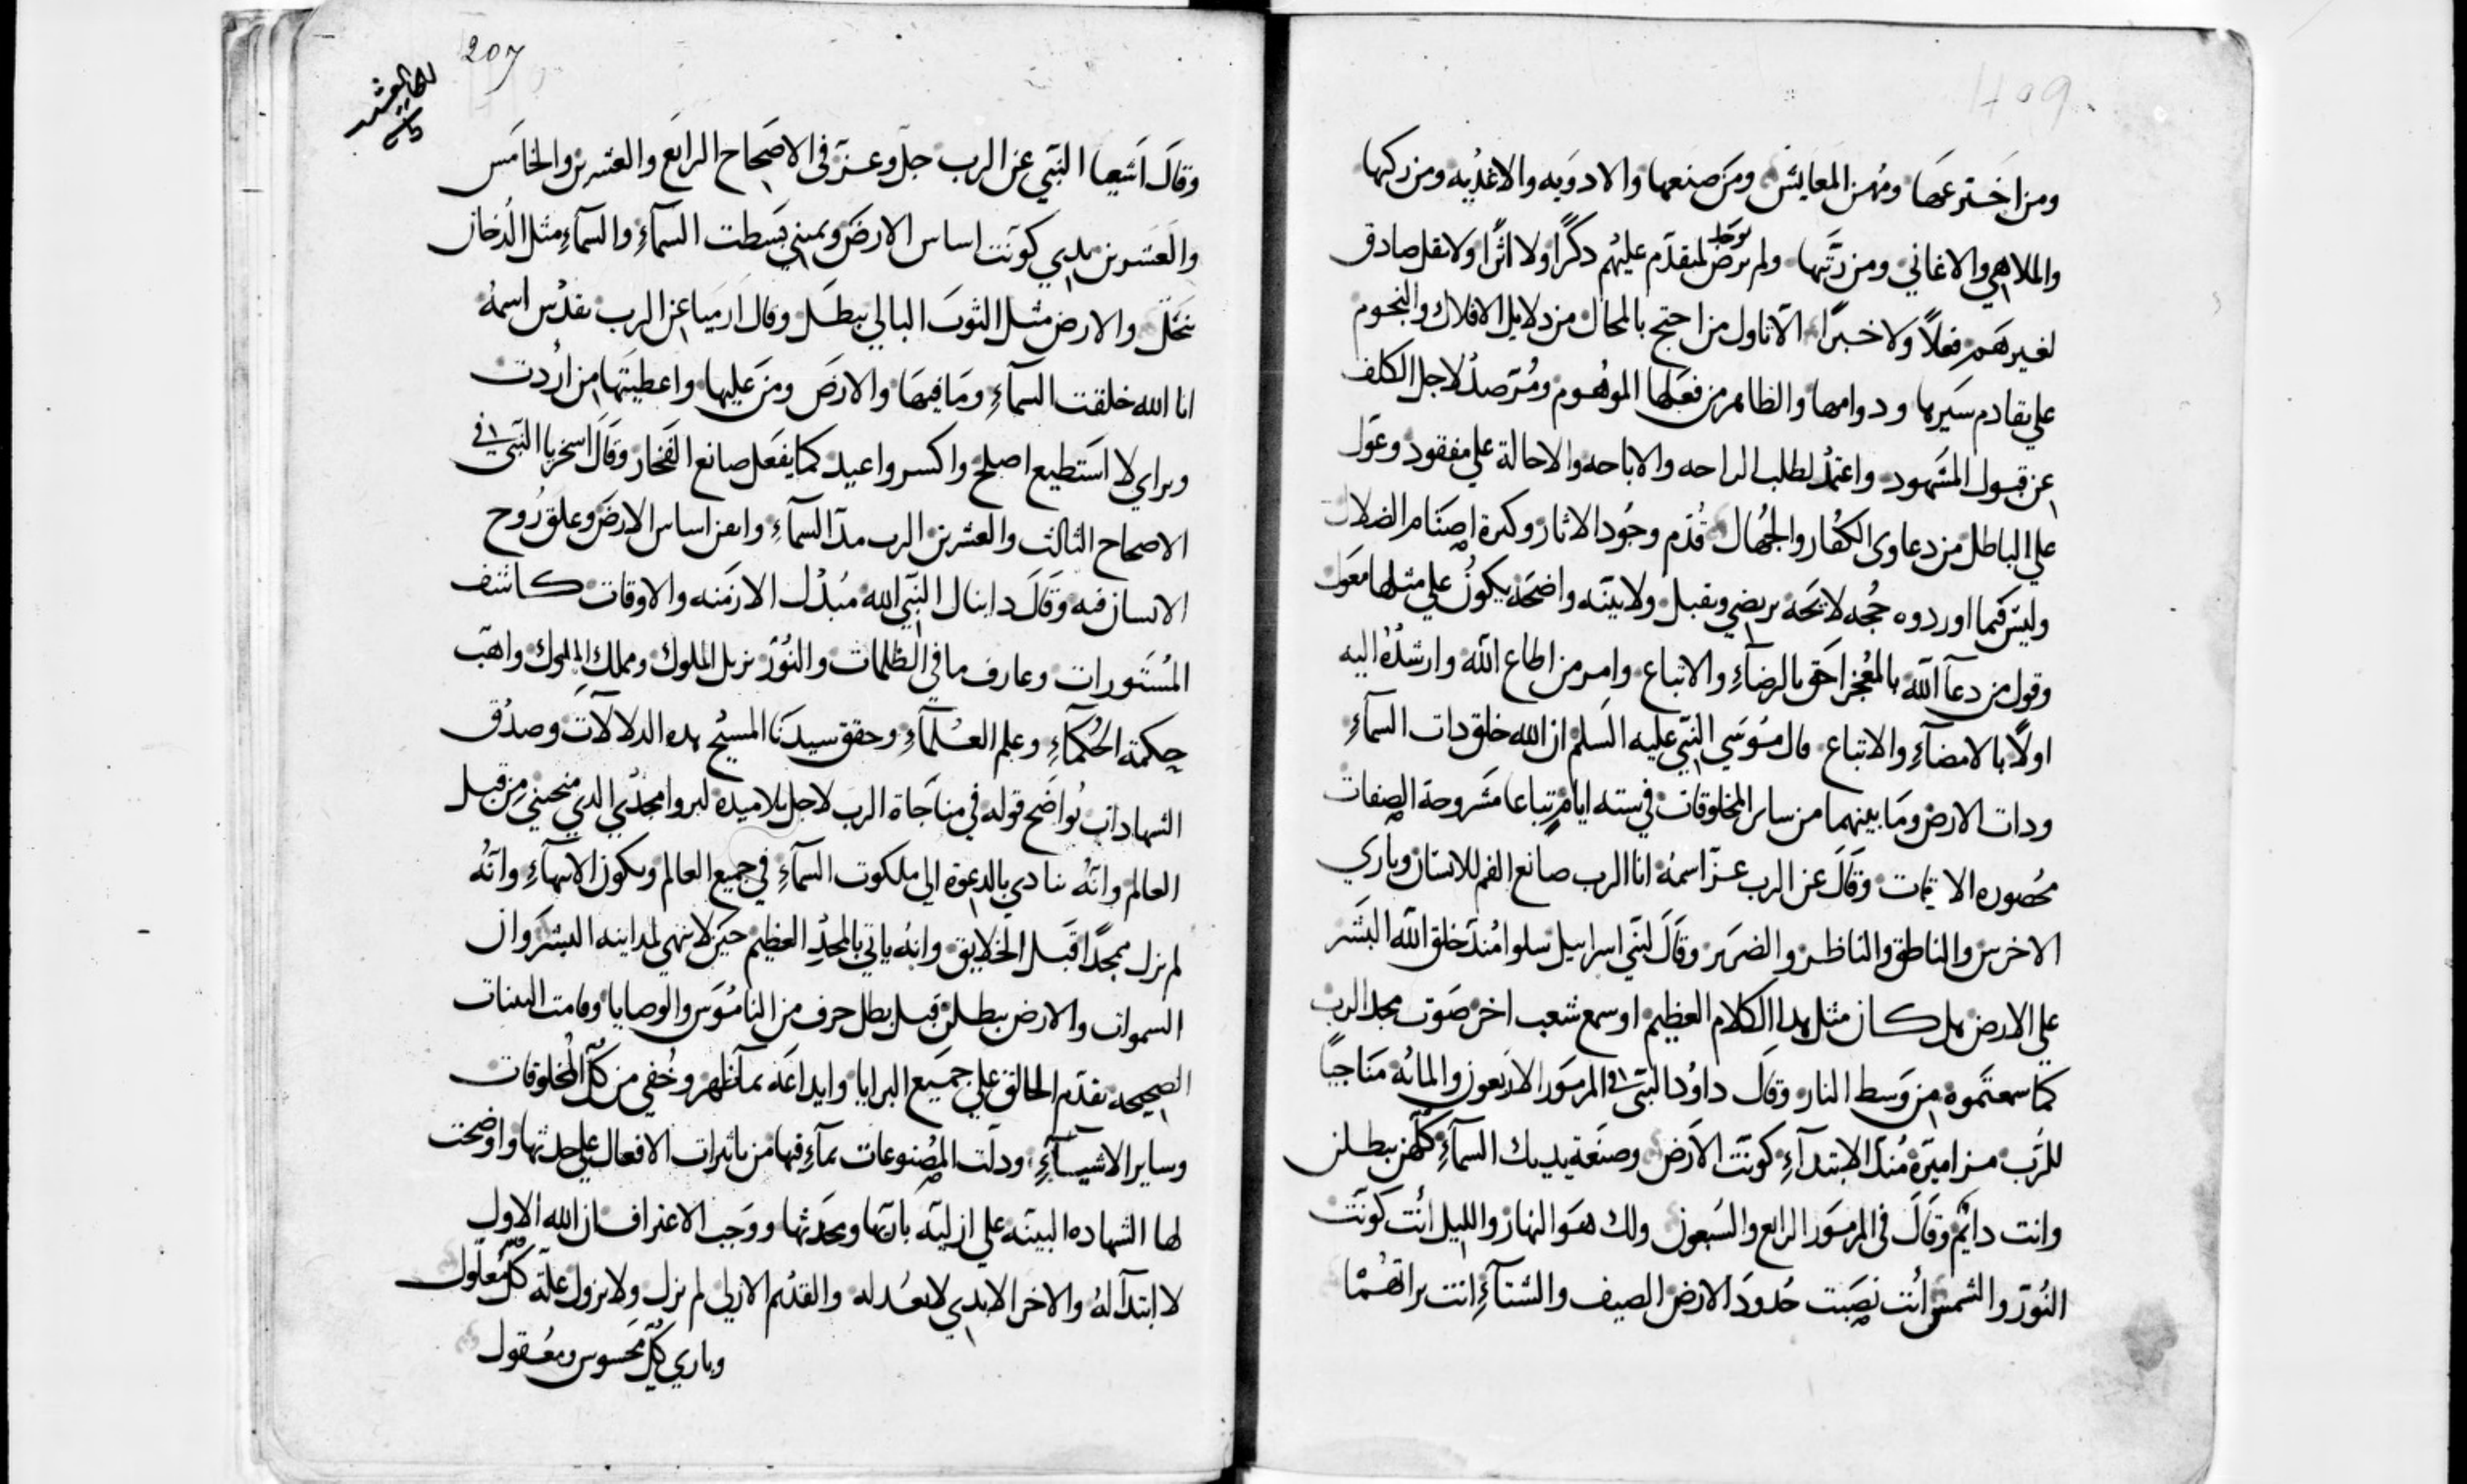 ومن اخترعها ومهن المعايش ومن صنعها والادويه والاغديه ومن ركبها
والملاهي والاغاني ومن رتبها ولم يرض لمتقدم عليهم دكرًا ولا اثرًا ولا نقل صادق
يوجد
لغيرهم فعلاً ولا خبرًا الا تاول من احتج بالمحال من دلايل الافلاك والنجوم
علي تقادم سيرها ودوامها والظاهر من فعلها الموهوم ومترصد لاجل الكلف
عن قبول المشهود واعتمد لطلب الراحه والاباحه والاحالة علي مفقود وعول
علي الباطل من دعاوى الكفار والجهال قدم وجود الاثار وكثرة اصنام الضلال
وليس فيما اوردوه حجه لايحه يرتضي وتقبل ولا بينه واضحه يكون علي مثلها معول
وقول من دعآ الله بالمعجز احق بالرضآء والاتباع وامر من اطاع الله وارشد اليه
اولاً بالامضآء والاتباع قال موسي النبي عليه السلم ان الله خلق دات السمآء
ودات الارض وما بينهما من ساير المخلوقات في سته ايام تباعا مشروحة الصفات
محصوره الاوقات وقال عن الرب عز اسمه انا الرب صانع الفم للانسان وباري
الاخرس والناطق والناظر والضرير وقال لبني اسراييل سلوا مند خلق الله البشر
علي الارض هل كان مثل هدا الكلام العظيم او سمع شعب اخر صوت مجد الرب
كما سمعتموه من وسط النار وقال داوُد النبي في المزمور الاربعون والمائه مناجيًا
للرب مزاميره مند الابتدآء كونت الارض وصنعة يديك السمآء كلهن يبطلن
وانت دايم وقال في المزمور الرابع والسبعون ولك هو النهار والليل انت كونت
النور والشمس انت نصبت حدود الارض الصيف والشتآء انت براتهما
207
وقال اشعيا النبي عن الرب جل وعز في الاصحاح الرابع والعشرين والخامس
والعشرين بيدي كونت اساس الارض ويميني بسطت السمآء والسمآء مثل الدخان
تنحل والارض مثل الثوب البالي يبطل وقال ارميا عن الرب تقدس اسمه
انا الله خلقت السمآء وما فيها والارض ومن عليها واعطيتها من اردت
وبراي لا استطيع اصلح واكسر واعيد كما يفعل صانع الفخار وقال اسخريا النبي في
الاصحاح الثالث والعشرين الرب مد السمآء واتقن اساس الارض وعلق روح
الانسان فيه وقال دانيال النبي الله مبدل الازمنه والاوقات كاشف
المستورات وعارف ما في الظلمات والنور يزيل الملوك ومملك الملوك واهب
حكمة الحكمآء وعلم العلمآء وحقق سيدنا المسيح هده الدلالات وصدق
الشهادات بواضح قوله في مناجاة الرب لاجل تلاميده ليروا مجدي الدي منحتني من قبل
العالم وانه ينادي بالدعوة الي ملكوت السمآء في جميع العالم ويكون الانتهآء وانه
لم يزل ممجدًا قبل الخلايق وانه ياتي بالمجد العظيم حين لا ينهي لمداينه البشر وان
السموات والارض يبطلن قبل بطل حرف من الناموس والوصايا وقامت البينات
الصحيحه بتقدم الخالق علي جميع البرايا وابداعه بمآ ظهر وخفي من كل المخلوقات
وساير الاشيآء ودلت المصنوعات بمآء فيها من تاثيرات الافعال علي حدثها واوضحت
لها الشهاده البينه علي ازلية بانيها ومحدثها ووجب الاعتراف ان الله الاول
لا ابتدآ له والاخر الابدي لا بعد له والقديم الازلي لم يزل ولا يزول علة كل معلول
وباري كل محسوس ومعقول